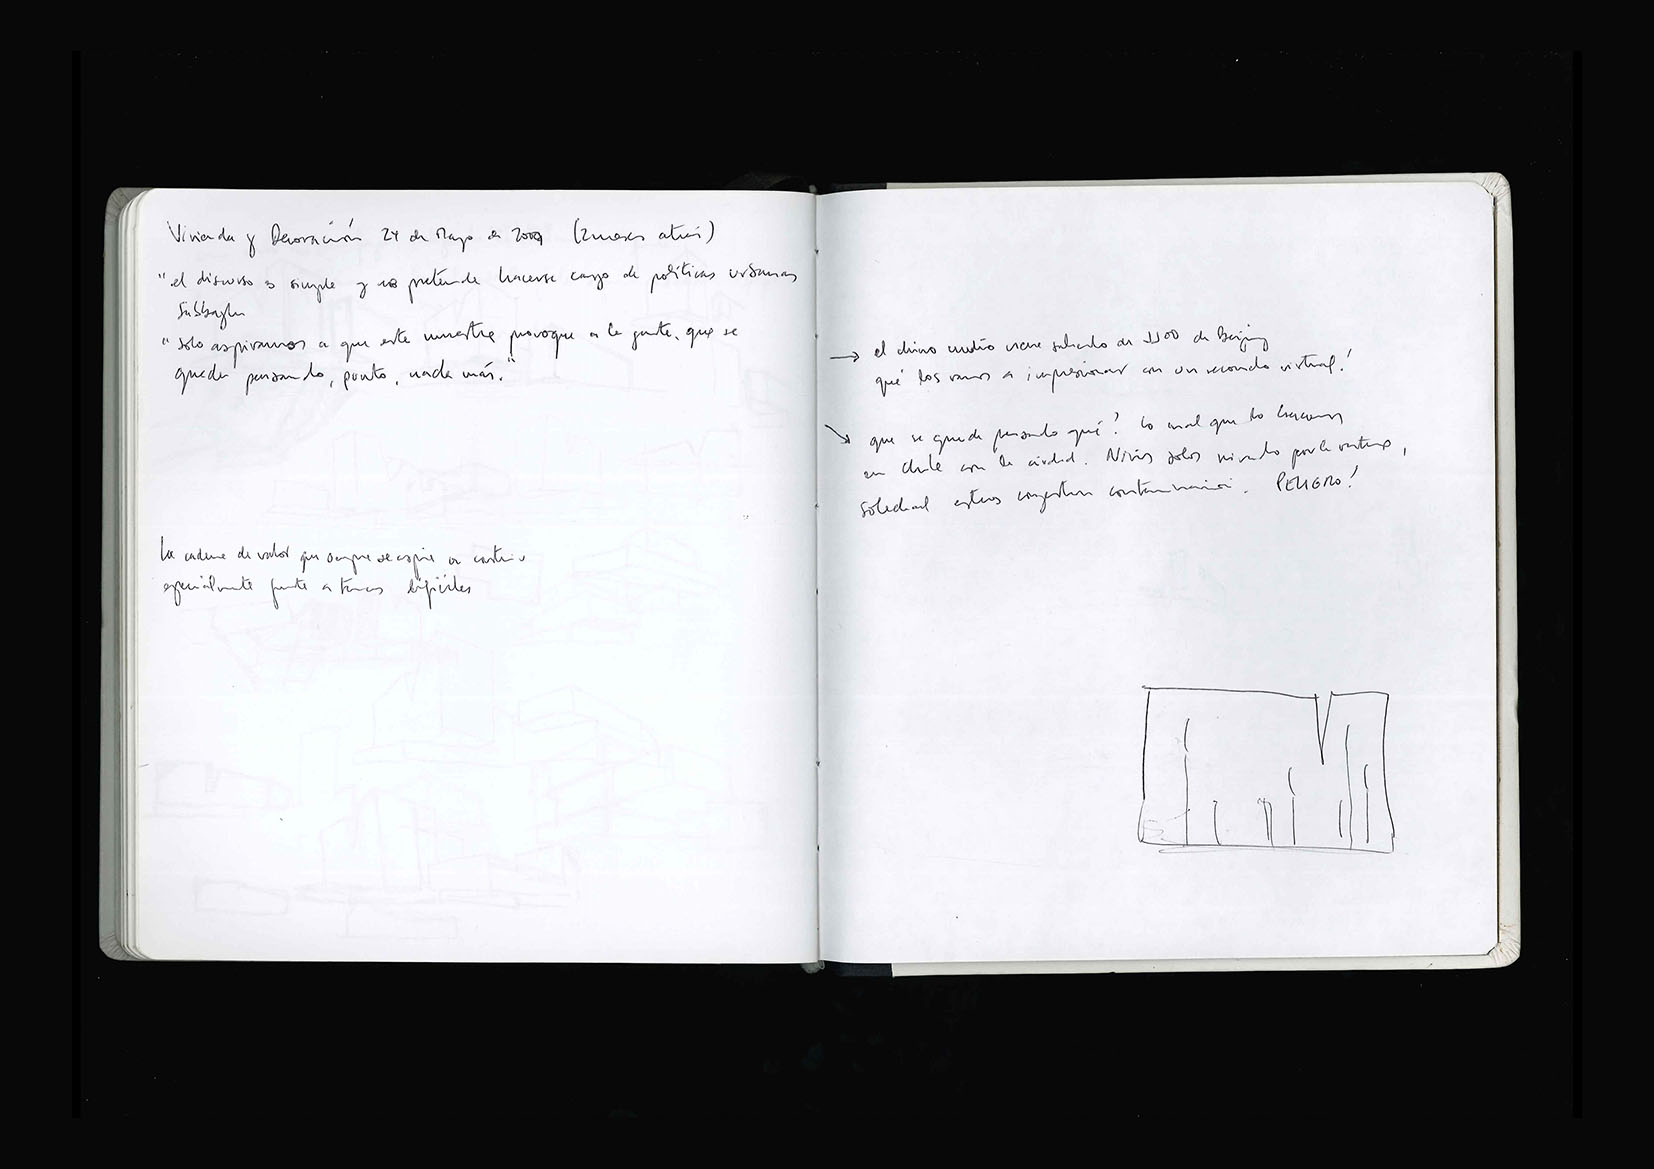 Vivienda y Decoración 24 de Mayo de 2009 (2 meses atrás)
"el discurso es simple y no pretende hacerse cargo de políticas urbanas
"solo aspiramos a que esta muestra provoque a la gente, que se
quede pensando, punto, nada más."
La cadena de valor que se
especialmente frente a temas difíciles
→ el chino medio viene saliendo de JJOO de Beijing
qué los vamos a impresionar con un recorrido virtual!
↘ que se quede pensando qué? lo mal que lo hacemos
en Chile con la ciudad. Niños solos mirando por la ventana,
soledad congestion contaminación. PELIGRO!